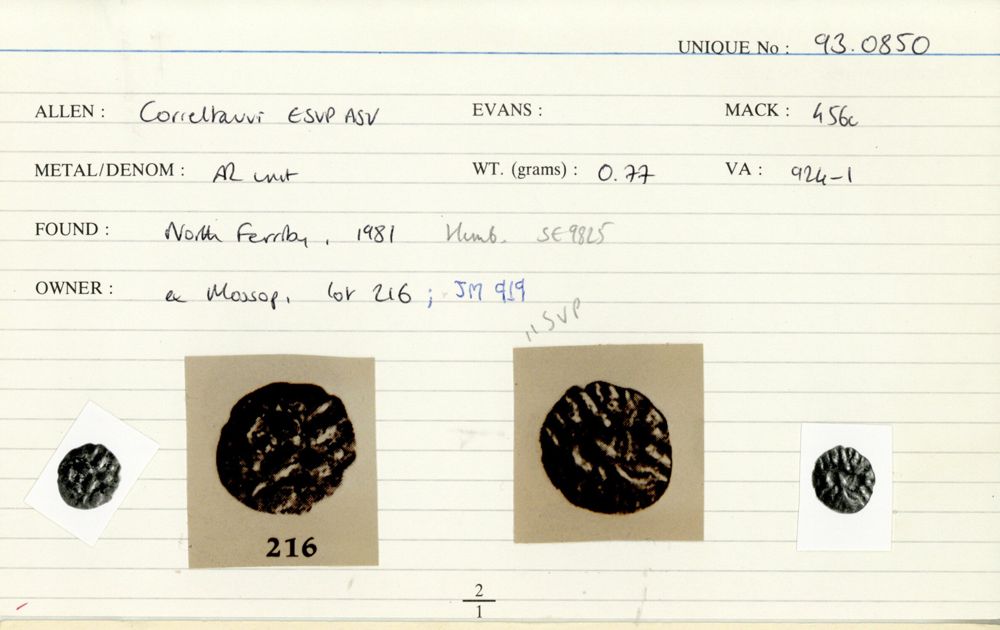 UNIQUE No : 93.0850
ALLEN : Corieltauvi ESVP ASV EVANS : MACK : 456c
METAL/DENOM : AR unit WT. (grams) : 0.77 VA : 924-1
FOUND : North Ferriby, 1981 Humb. SE9825
OWNER : ex Mossop, lot 216 ; JM 919
SVP
216
2
1